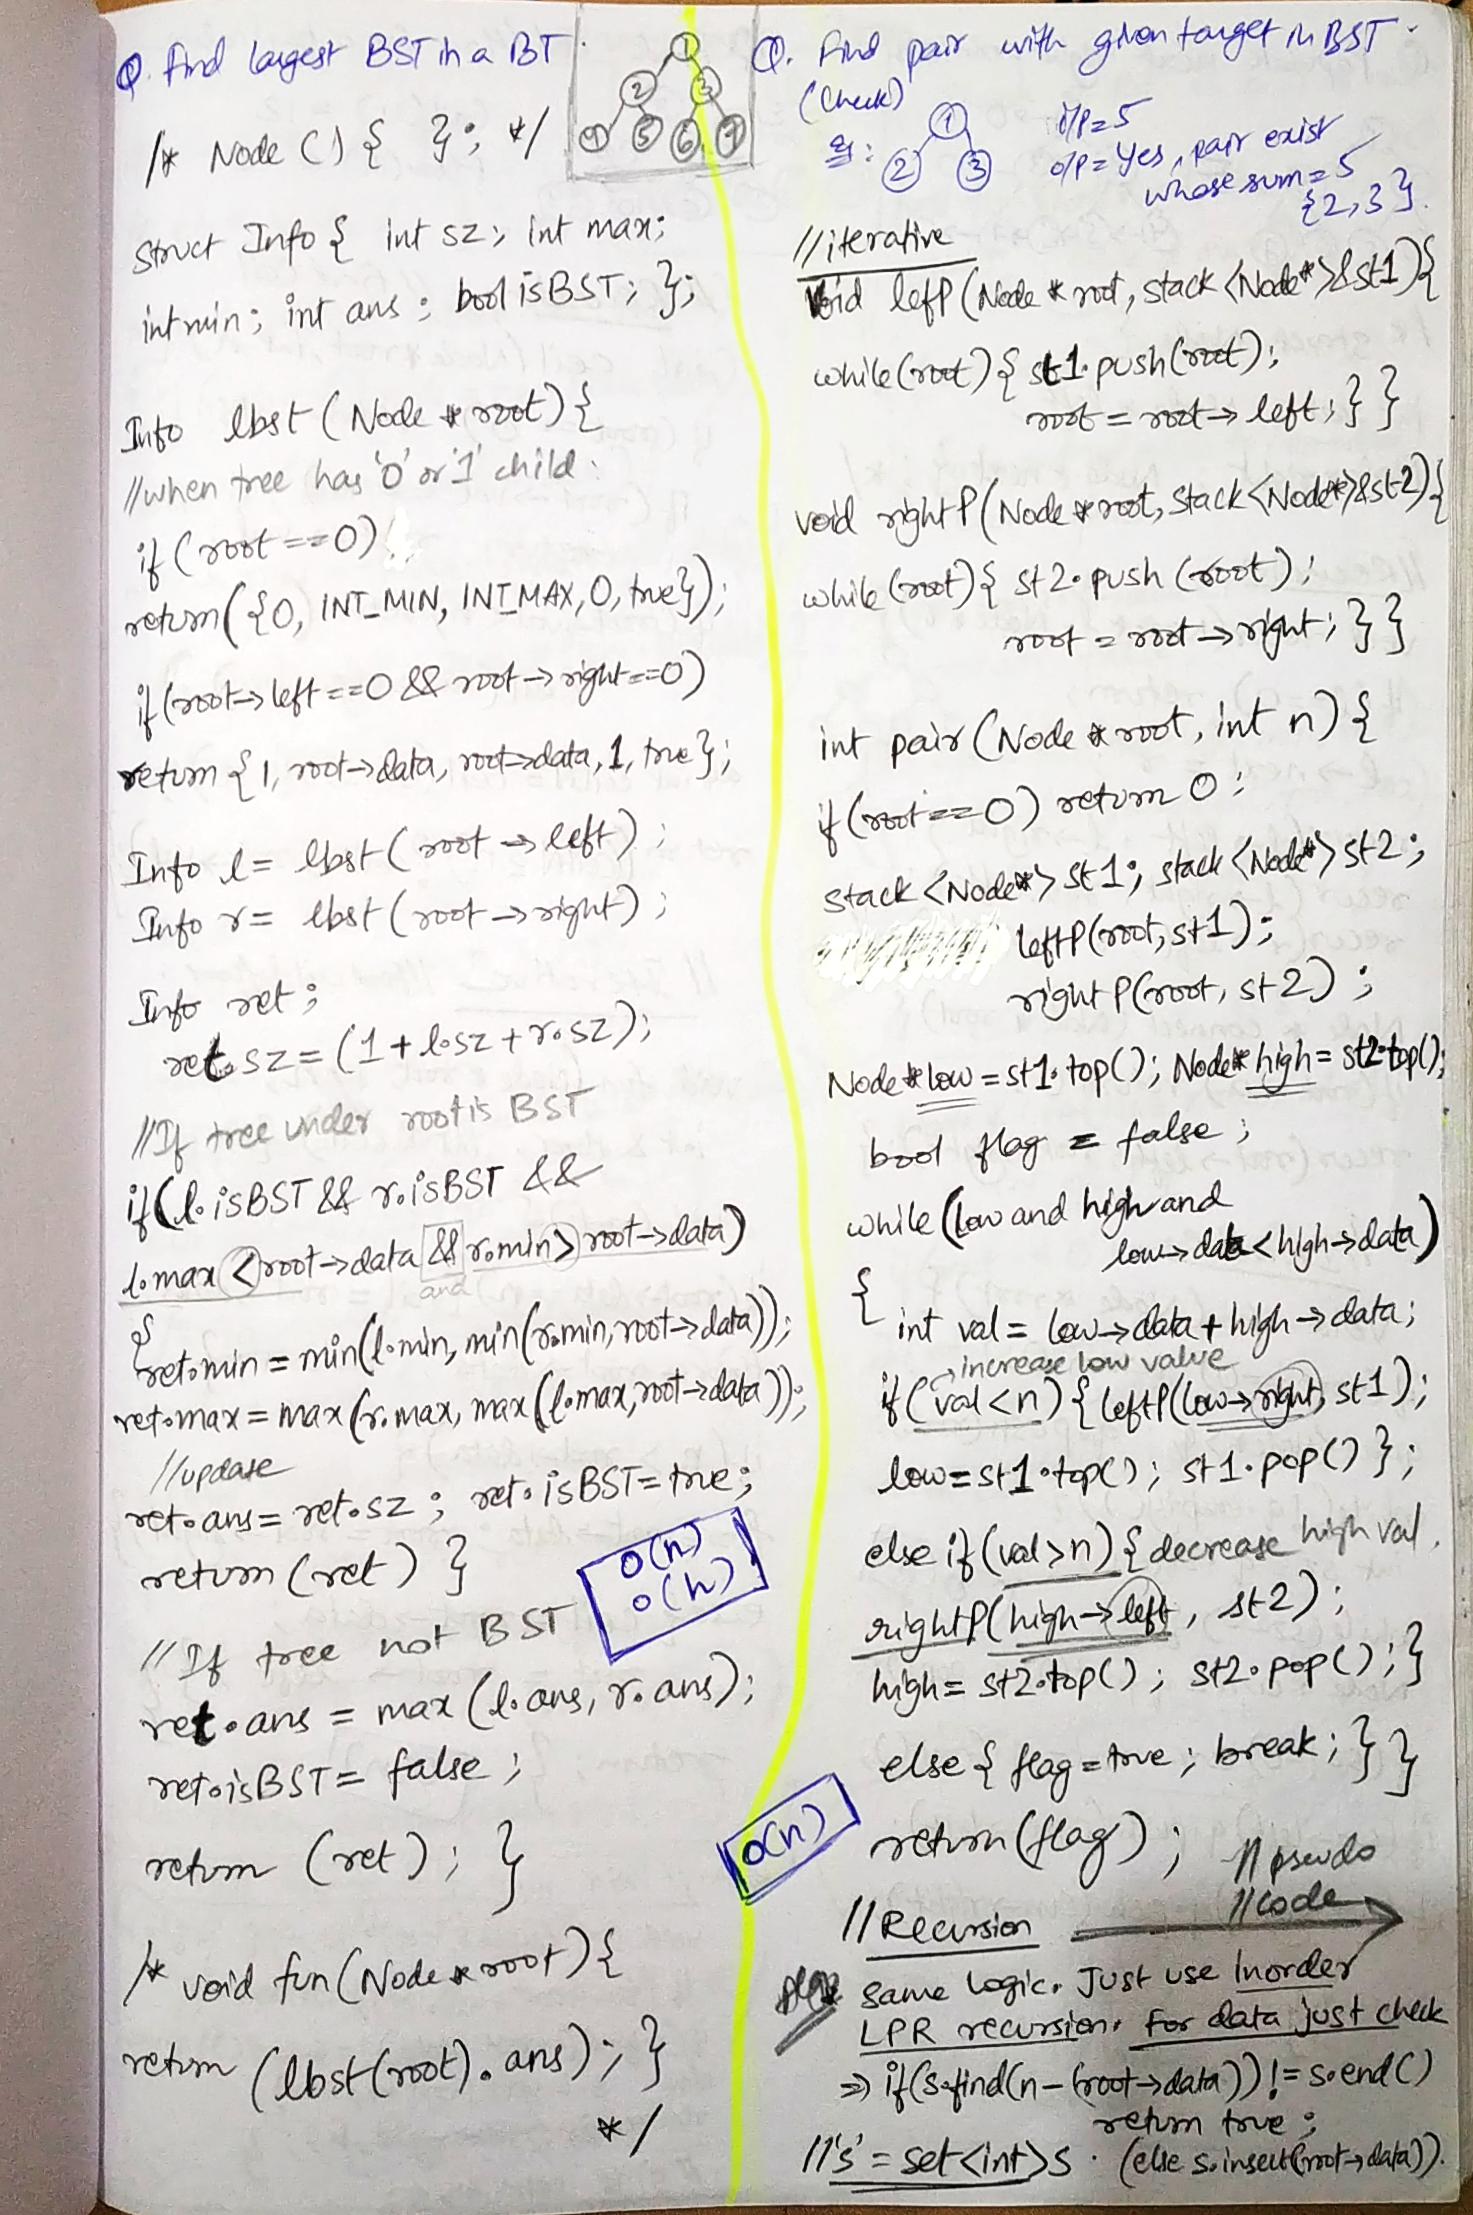 Q. Find largest BST in a BT.
1
2 3
4 5 6 7
/* Node () { }; */
Struct Info { int sz; int max;
int min; int ans; bool isBST; };
Info lbst (Node * root) {
//when tree has '0' or '1' child.
if (root == 0)
return ({0, INT_MIN, INT_MAX, 0, true});
if (root->left == 0 && root->right == 0)
return {1, root->data, root->data, 1, true};
Info l = lbst (root -> left);
Info r = lbst (root -> right);
Info ret;
ret.sz = (1 + l.sz + r.sz);
//If tree under root is BST
if (l.isBST && r.isBST &&
l.max < root->data && r.min > root->data)
and
{
ret.min = min(l.min, min(r.min, root->data));
ret.max = max (r.max, max (l.max, root->data));
//update
ret.ans = ret.sz; ret.isBST = true;
return (ret) }
O(n)
O(h)
//If tree not BST
ret.ans = max (l.ans, r.ans);
ret.isBST = false;
return (ret); }
/* void fun (Node * root) {
return (lbst (root).ans); }
*/
Q. Find pair with given target in BST.
(Check)
eg: 1
2 3
i/p = 5
o/p = Yes, pair exist
whose sum = 5
{2,3}.
//iterative
void leftP (Node * root, stack <Node*> &st1) {
while (root) { st1.push (root);
root = root -> left; } }
void rightP (Node * root, stack <Node*> &st2) {
while (root) { st2.push (root);
root = root -> right; } }
int pair (Node * root, int n) {
if (root == 0) return 0;
stack <Node*> st1; stack <Node*> st2;
leftP (root, st1);
rightP (root, st2);
Node * low = st1.top(); Node * high = st2.top();
bool flag = false;
while (low and high and
low->data < high->data)
{ int val = low->data + high->data;
-> increase low value
if (val < n) { leftP (low->right, st1);
low = st1.top(); st1.pop() };
else if (val > n) { decrease high val.
rightP (high->left, st2);
high = st2.top(); st2.pop(); }
else { flag = true; break; } }
O(n)
return (flag); // pseudo
// code
// Recursion
Same logic. Just use Inorder
LPR recursion. For data just check
=> if (s.find(n - (root->data)) != s.end()
return true;
//'s' = set <int> s. (else s.insert(root->data)).